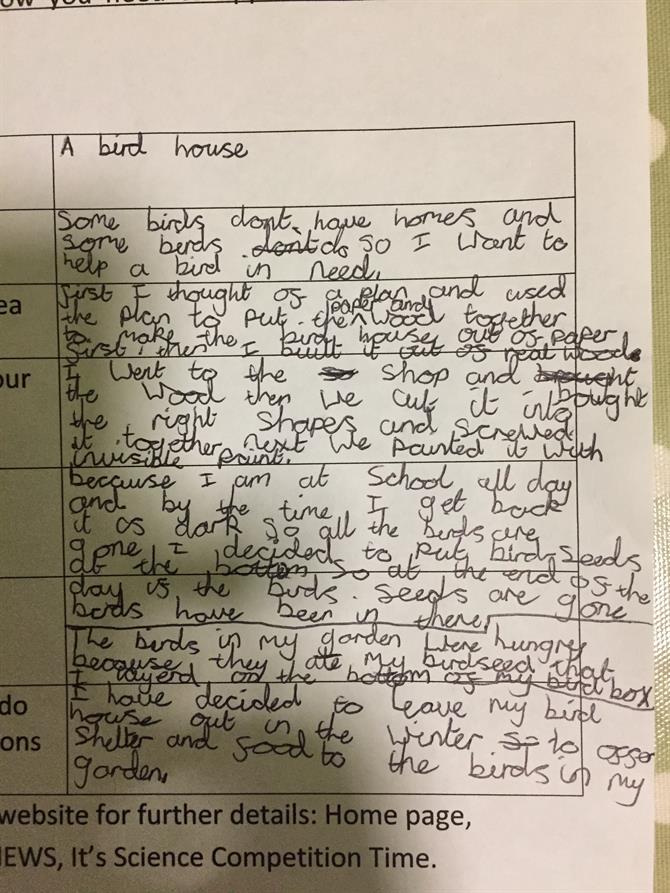 ow you need
A bird house
Some birds dont have homes and
some berds do so I want to
help a bird in need.
ea
first I thought of a plan and used
the plan to put the paper and wood together
to make the bird house out of paper
first. then I built it out of real wood.
our
I went to the shop and bought
the wood then we cut it into
the right shapes and screwed
it together next we painted it with
invisible paint.
because I am at School all day
and by the time I get back
it is dark so all the berds are
gone I decided to put bird seeds
at the bottom so at the end of the
day if the birds. seeds are gone
berds have been in there,
The birds in my garden were hungry
because they ate my birdseed that
I layerd on the bottom of my bird box
do
I have decided to leave my bird
house out in the winter to offer
ons
Shelter and food to the birds in my
garden.
website for further details: Home page,
NEWS, It's Science Competition Time.